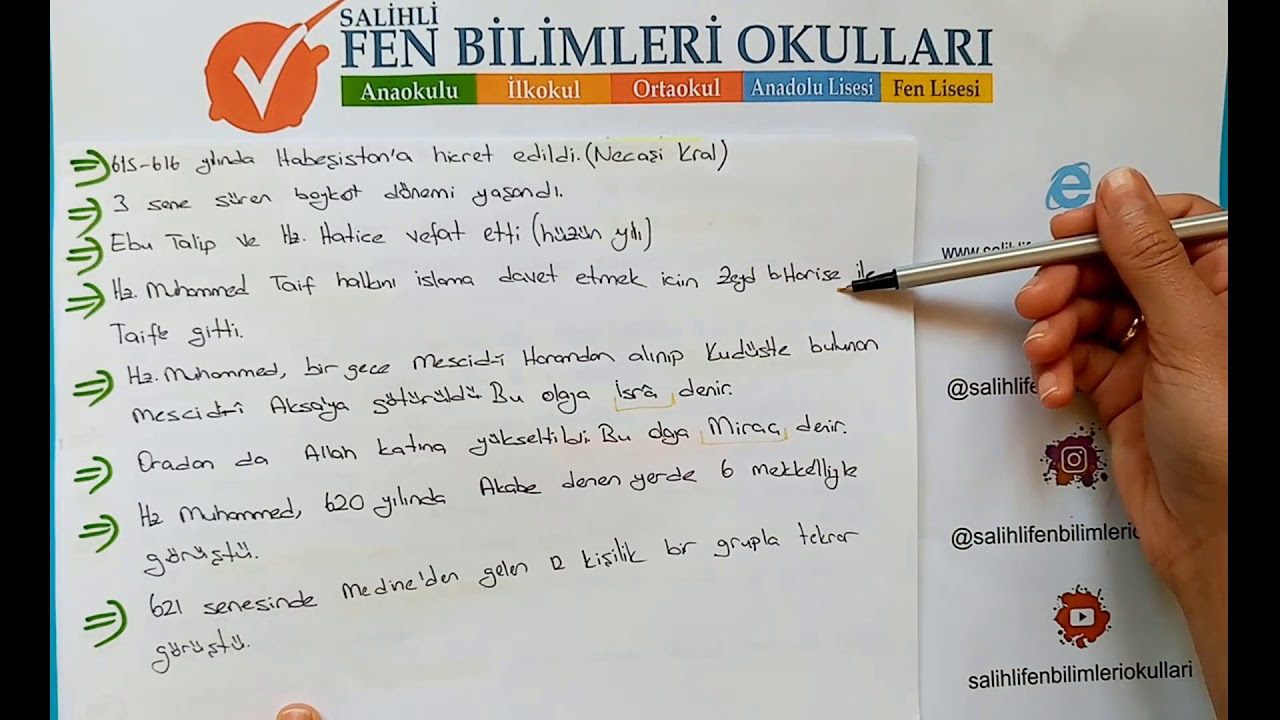 SALİHLİ
FEN BİLİMLERİ OKULLARI
Anaokulu İlkokul Ortaokul Anadolu Lisesi Fen Lisesi
615-616 yılında Habeşistan'a hicret edildi. (Necaşi Kral)
3 sene süren boykot dönemi yaşandı.
Ebu Talip ve Hz. Hatice vefat etti (hüzün yılı)
Hz. Muhammed Taif halkını islama davet etmek için Zeyd b. Harise ile
Taif'e gitti.
Hz. Muhammed, bir gece Mescid-i Haramdan alınıp Kudüs'te bulunan
Mescid-i Aksa'ya götürüldü. Bu olaya İsrâ denir.
Oradan da Allah katına yükseltildi. Bu olaya Miraç denir.
Hz Muhammed, 620 yılında Akabe denen yerde 6 mekkeliyle
görüştü.
621 senesinde Medine'den gelen 12 kişilik bir grupla tekrar
görüştü.
@salihlifen
@salihlifenbilimleri
salihlifenbilimleriokullari